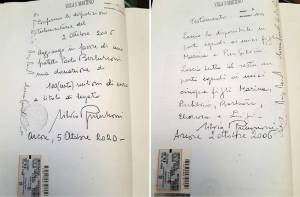 VILLA S. MARTINO
Confermo le disposizioni
testamentarie del
2 Ottobre 2006
Aggiungo a favore di mio
fratello Paolo Berlusconi
una donazione di
100 (cento) milioni di euro
a titolo di legato
Silvio Berlusconi
Arcore, 5 Ottobre 2020 -
VILLA S. MARTINO
Testamento
Lascio la disponibile in
parti eguali ai miei figli
Marina e Pier Silvio
Lascio tutto il resto in
parti eguali ai miei
cinque figli Marina,
Pier Silvio, Barbara,
Eleonora e Luigi
Silvio Berlusconi
Arcore 2 ottobre 2006